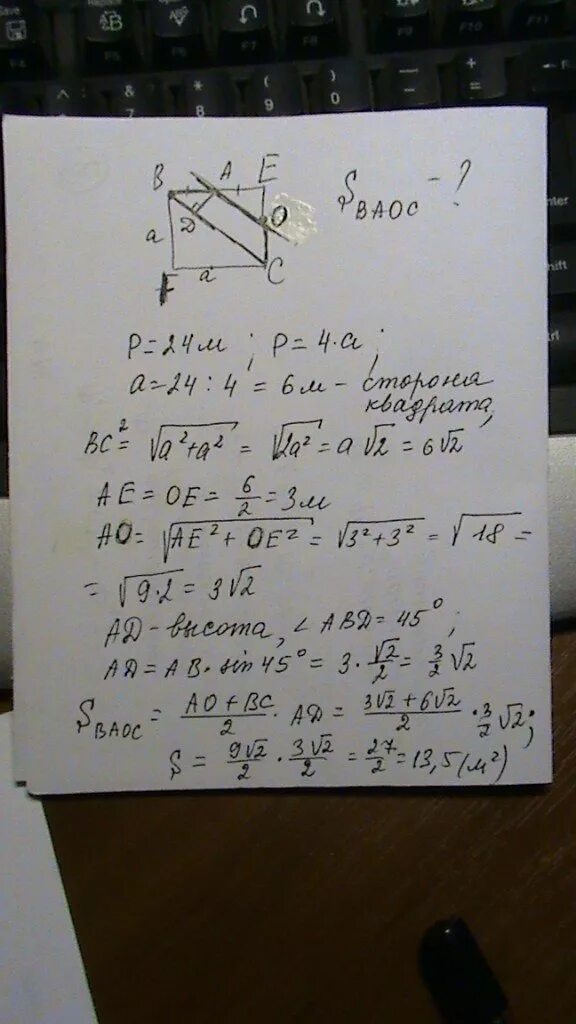 B A E
S_BAOC - ?
D O
a
F a C
P = 24м ; P = 4·a ;
a = 24 : 4 = 6м - сторона
квадрата,
BC² = √a²+a² = √2a² = a√2 = 6√2
AE = OE = 6/2 = 3м
AO = √AE² + OE² = √3²+3² = √18 =
= √9·2 = 3√2
AD - высота, ∠ABD = 45° ;
AD = AB · sin 45° = 3 · √2/2 = 3/2 √2
S_BAOC = (AO + BC)/2 · AD = (3√2 + 6√2)/2 · 3/2 √2 ;
S = 9√2/2 · 3√2/2 = 27/2 = 13,5 (м²)